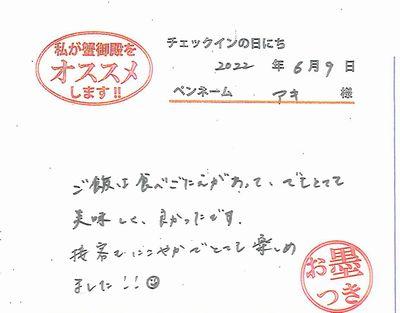 私が蟹御殿を
オススメ
します!!
チェックインの日にち
2022 年 6月 9 日
ペンネーム アキ 様
ご飯は食べごたえがあって、でもとても
美味しく、良かったです。
接客もにこやかでとても楽しめ
ました!!
お墨
つき